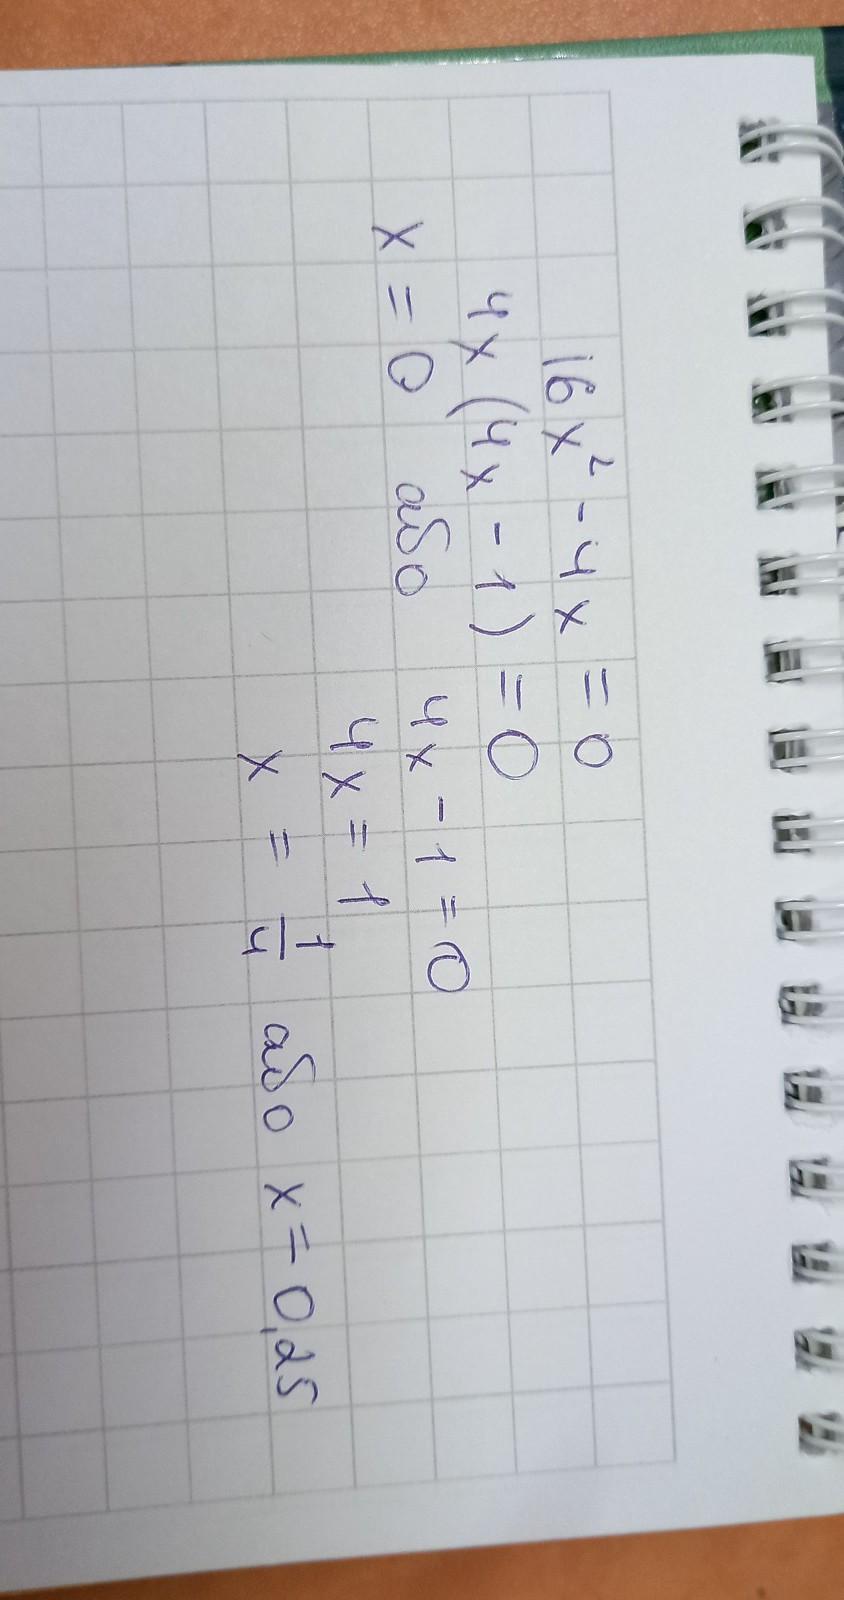 16x² - 4x = 0
4x (4x - 1) = 0
x = 0 або 4x - 1 = 0
4x = 1
x = 1/4 або x = 0,25